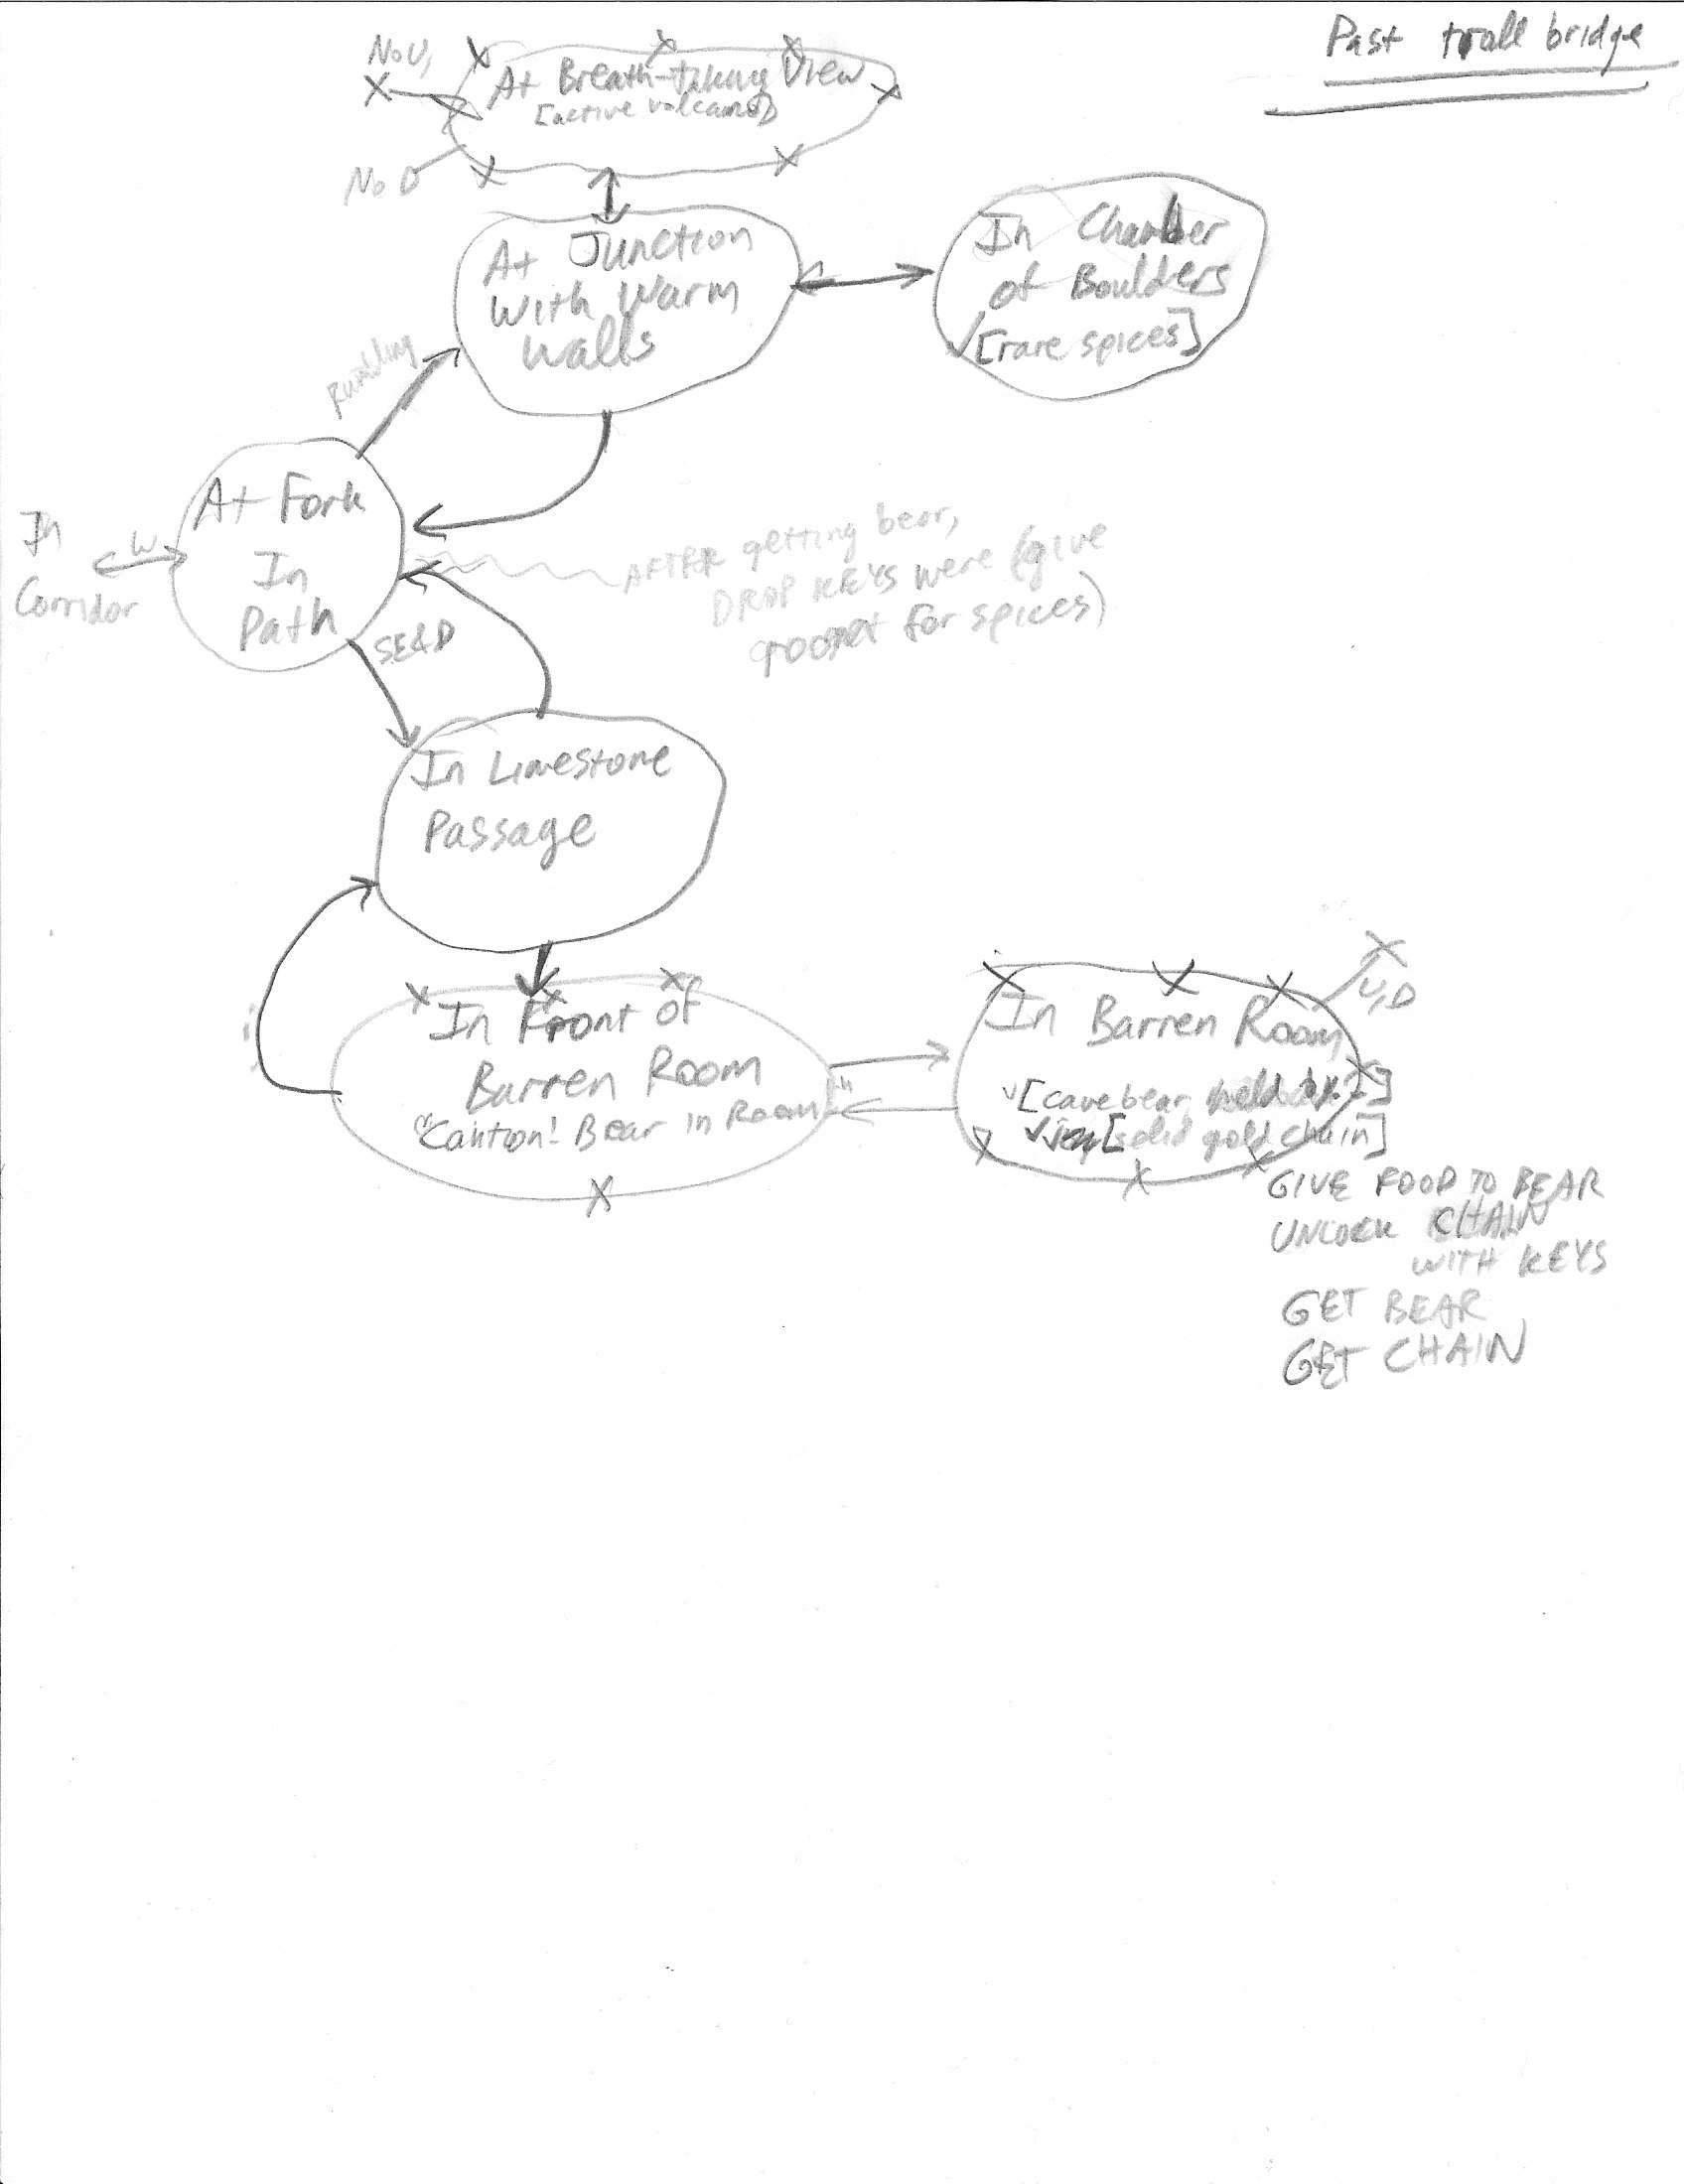 Past troll bridge
No U,
At Breath-taking View
[active volcano]
No D
At Junction
With Warm
Walls
In Chamber
of Boulders
[rare spices]
Rumbling
At Fork
In
Path
In
Corridor
W
AFTER getting bear,
DROP KEYS were (give
for spices)
SE&D
In Limestone
Passage
In Front of
Barren Room
"Caution! Bear in Room"
U,D
In Barren Room
[cave bear
[solid gold chain]
GIVE FOOD TO BEAR
UNLOCK CHAIN
WITH KEYS
GET BEAR
GET CHAIN